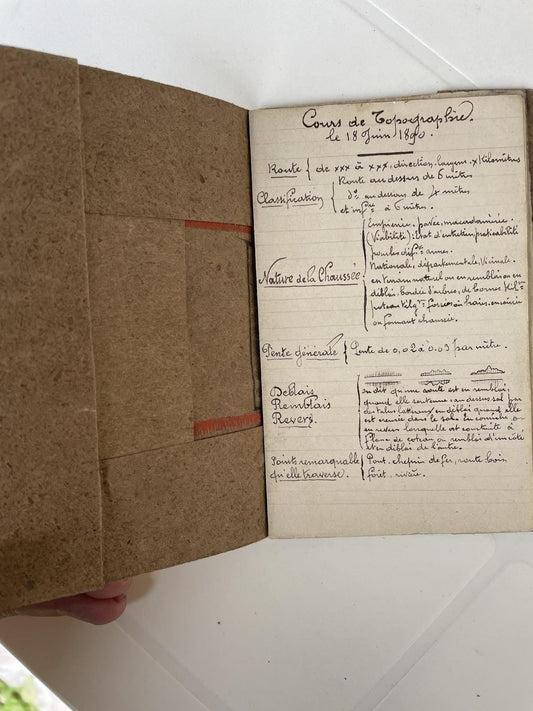 Cours de Topographie.
le 18 Juin 1890.
Route { de xxx à xxx, direction, largeur, x Kilomètres
Classification { Route au dessus de 6 mètres
do au dessous de 4 mètres
et infre à 6 mètres.
Nature de la Chaussée { Empierrée, pavée, macadamisée.
(Viabilité): état d'entretien praticabilité
pour les difftes armes.
Nationale, départementale, Vicinale.
en terrain naturel ou en remblai ou en
déblai, bordée d'arbres, de bornes Kilques
poteau fossés ou haies, encaissée
ou formant chaussée.
Pente générale { Pente de 0,02 à 0,03 par mètre.
Déblais
Remblais
Revers.
On dit qu'une route est en remblai,
quand elle est au dessus du sol par
des talus latéraux en déblai quand elle
est creusée dans le sol
en revers lorsqu'elle est construite à
flanc de coteau ou remblai d'un côté
et en déblai de l'autre.
Points remarquables { Pont, chemin de fer, route bois
qu'elle traverse. forêt, rivière.